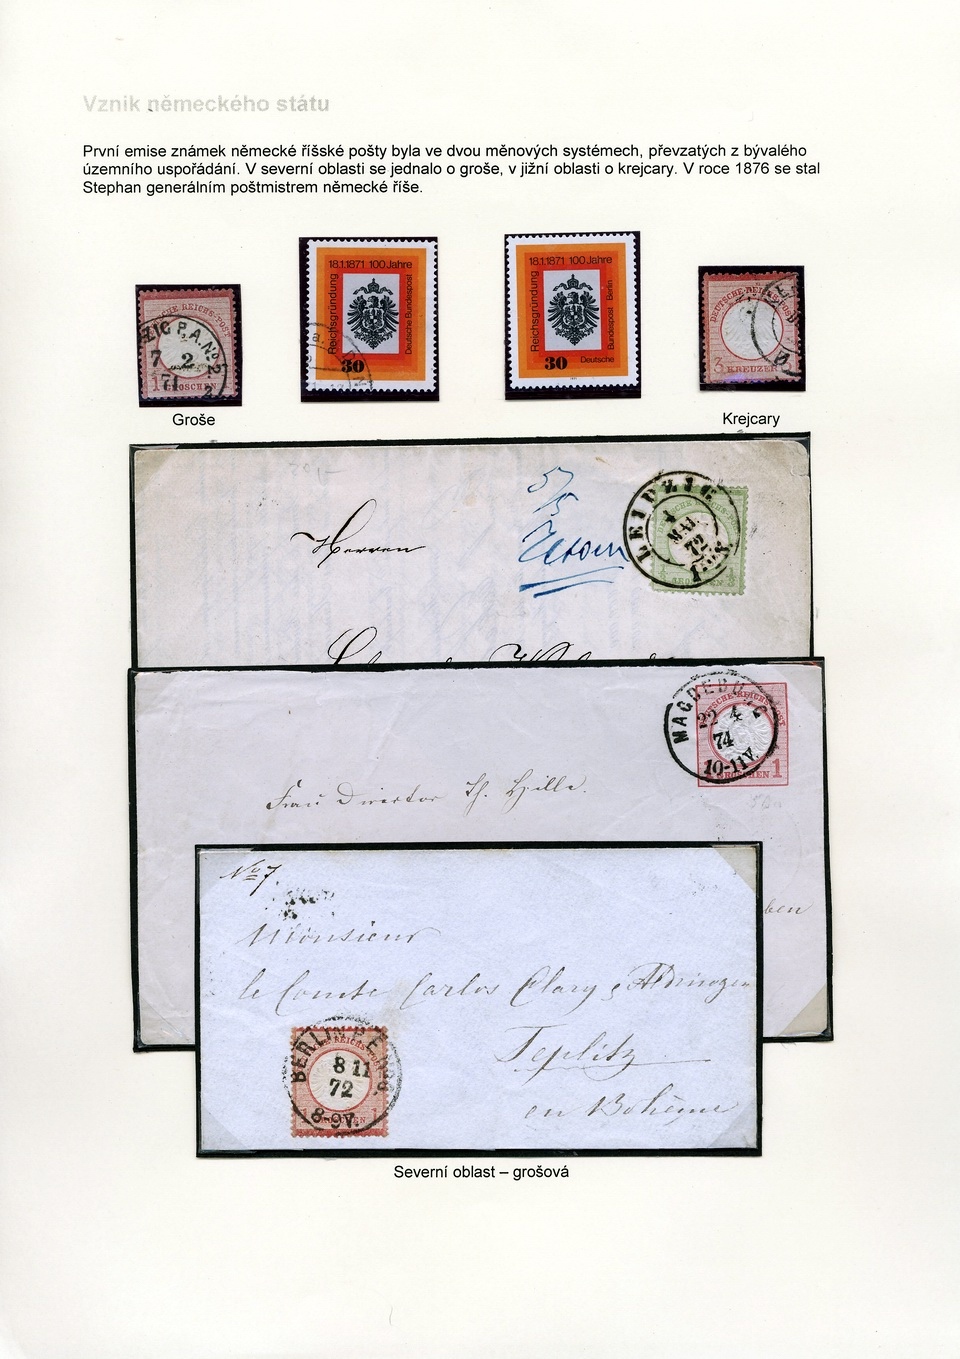 Vznik německého státu
První emise známek německé říšské pošty byla ve dvou měnových systémech, převzatých z bývalého
územního uspořádání. V severní oblasti se jednalo o groše, v jižní oblasti o krejcary. V roce 1876 se stal
Stephan generálním poštmistrem německé říše.
ZIG P.A.No 2
7 2
71
1 GROSCHEN
18.1.1871 100 Jahre
Reichsgründung
Deutsche Bundespost
30
18.1.1871 100 Jahre
Reichsgründung
Bundespost Berlin
30 Deutsche
DEUTSCHE REICHS
3 KREUZER
Groše
Krejcary
5/5
Herren
LEIPZIG
1
MAI
72
GROSCHEN
MAGDEBURG
22 4
74
10-11V.
GROSCHEN 1
Frau Director Th. Hille.
ben
No 7
Monsieur
le Comte Carlos Clary & Aldringen
Teplitz
en Bohême
BERLIN
8 11
72
8-9V.
Severní oblast – grošová